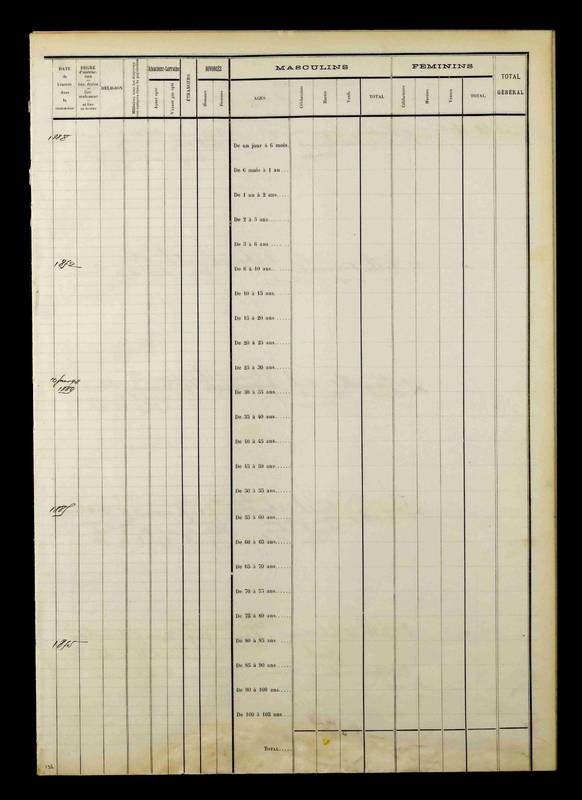 DATE
de
l'entrée
dans
la
commune
DEGRÉ
RELIGION
Alsaciens-Lorrains
Ayant opté
N'ayant pas opté
ÉTRANGERS
DIVORCÉS
Hommes
Femmes
MASCULINS
AGES
Célibataires
Mariés
Veufs
TOTAL
FÉMININS
Célibataires
Mariées
Veuves
TOTAL
TOTAL
GÉNÉRAL
De un jour à 6 mois.
De 6 mois à 1 an...
De 1 an à 2 ans....
De 2 à 3 ans......
De 3 à 6 ans......
De 6 à 10 ans.....
De 10 à 15 ans....
De 15 à 20 ans.....
De 20 à 25 ans.....
De 25 à 30 ans.....
De 30 à 35 ans.....
De 35 à 40 ans.....
De 40 à 45 ans.....
De 45 à 50 ans.....
De 50 à 55 ans.....
De 55 à 60 ans.....
De 60 à 65 ans.....
De 65 à 70 ans.....
De 70 à 75 ans.....
De 75 à 80 ans.....
De 80 à 85 ans ....
De 85 à 90 ans.....
De 90 à 100 ans....
De 100 à 105 ans...
TOTAL.....
1888
1889